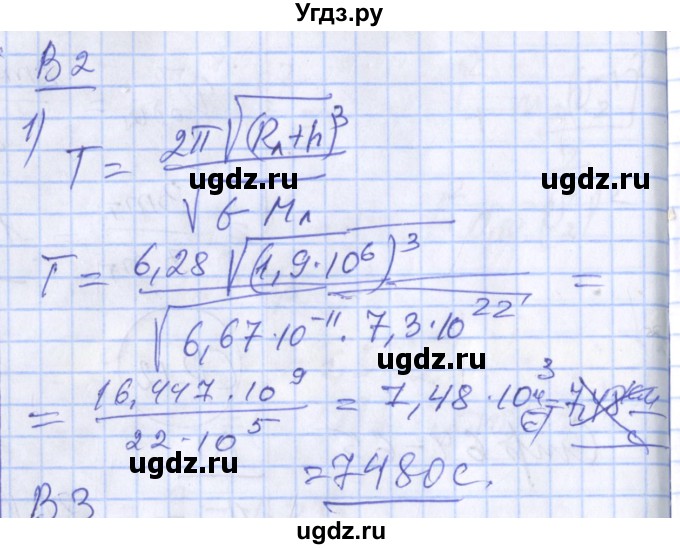 Угдз.ру
В 2
1) T = 2π√(Rл+h)³ / √G Mл
ugdz.ru ugdz.ru
T = 6,28 √(1,9·10⁶)³ / √6,67·10⁻¹¹ · 7,3·10²² =
ugdz.ru
= 16,447·10⁹ / 22·10⁵ = 7,48·10³ (с) =
ugdz.ru ugdz.ru
= 7480 с.
В 3
ugdz.ru